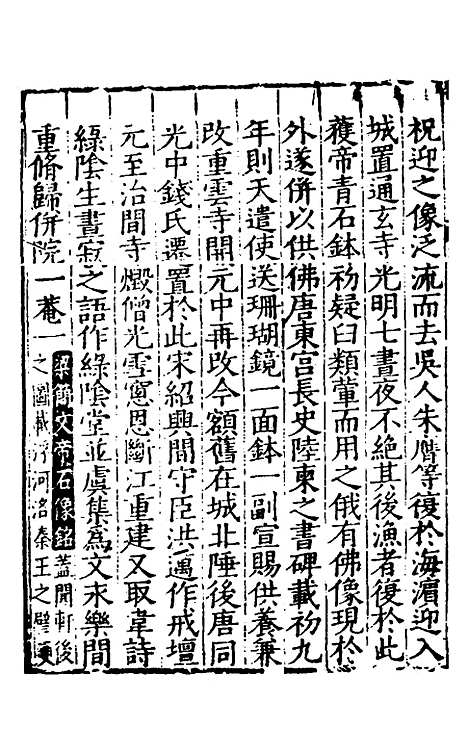 祝迎之像泛流而去吳人朱膺等復於海濵迎入
城置通玄寺光明七晝夜不絶其後漁者復於此
穫帝青石鉢初疑臼類葷而用之俄有佛像現於
外遂併以供佛唐東宫長史陸柬之書碑載初九
年則天遣使送珊瑚鏡一面鉢一副宣賜供養兼
改重雲寺開元中再改今額舊在城北陲後唐同
光中錢氏遷置於此宋紹興間守臣洪遵作戒壇
元至治間寺燬僧光雪窻恩斷江重建又取韋詩
綠陰生晝寂之語作綠陰堂並虞集爲文永樂間
重脩歸併院一菴一梁簡文帝石像銘蓋聞軒後
之圖載浮河洛秦王之璧更